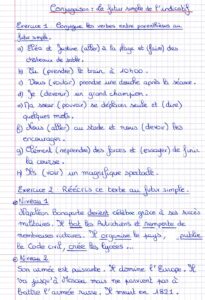 Conjugaison : Le futur simple de l'indicatif
Exercice 1 : Conjugue les verbes entre parenthèses au
futur simple.
a) Cléo et Justine (aller) à la plage et (faire) des
châteaux de sable.
b) Tu (prendre) le train à 10h00.
c) Vous (vouloir) prendre une douche après la séance.
d) Je (devenir) un grand champion.
e) Ma sœur (pouvoir) se déplacer seule et (dire)
quelques mots.
f) Nous (aller) au stade et nous (devoir) les
encourager.
g) Clément (reprendre) des forces et (essayer) de finir
la course.
h) Ils (voir) un magnifique spectacle.
Exercice 2 : Réécris ce texte au futur simple.
Niveau 1
Napoléon Bonaparte devient célèbre grâce à ses succès
militaires. Il bat les Autrichiens et remporte de
nombreuses victoires. Il organise le pays, publie
le Code civil, crée les lycées...
Niveau 2
Son armée est puissante. Il domine l'Europe. Il
va jusqu'à Moscou mais ne parvient pas à
battre l'armée russe. Il meurt en 1821.